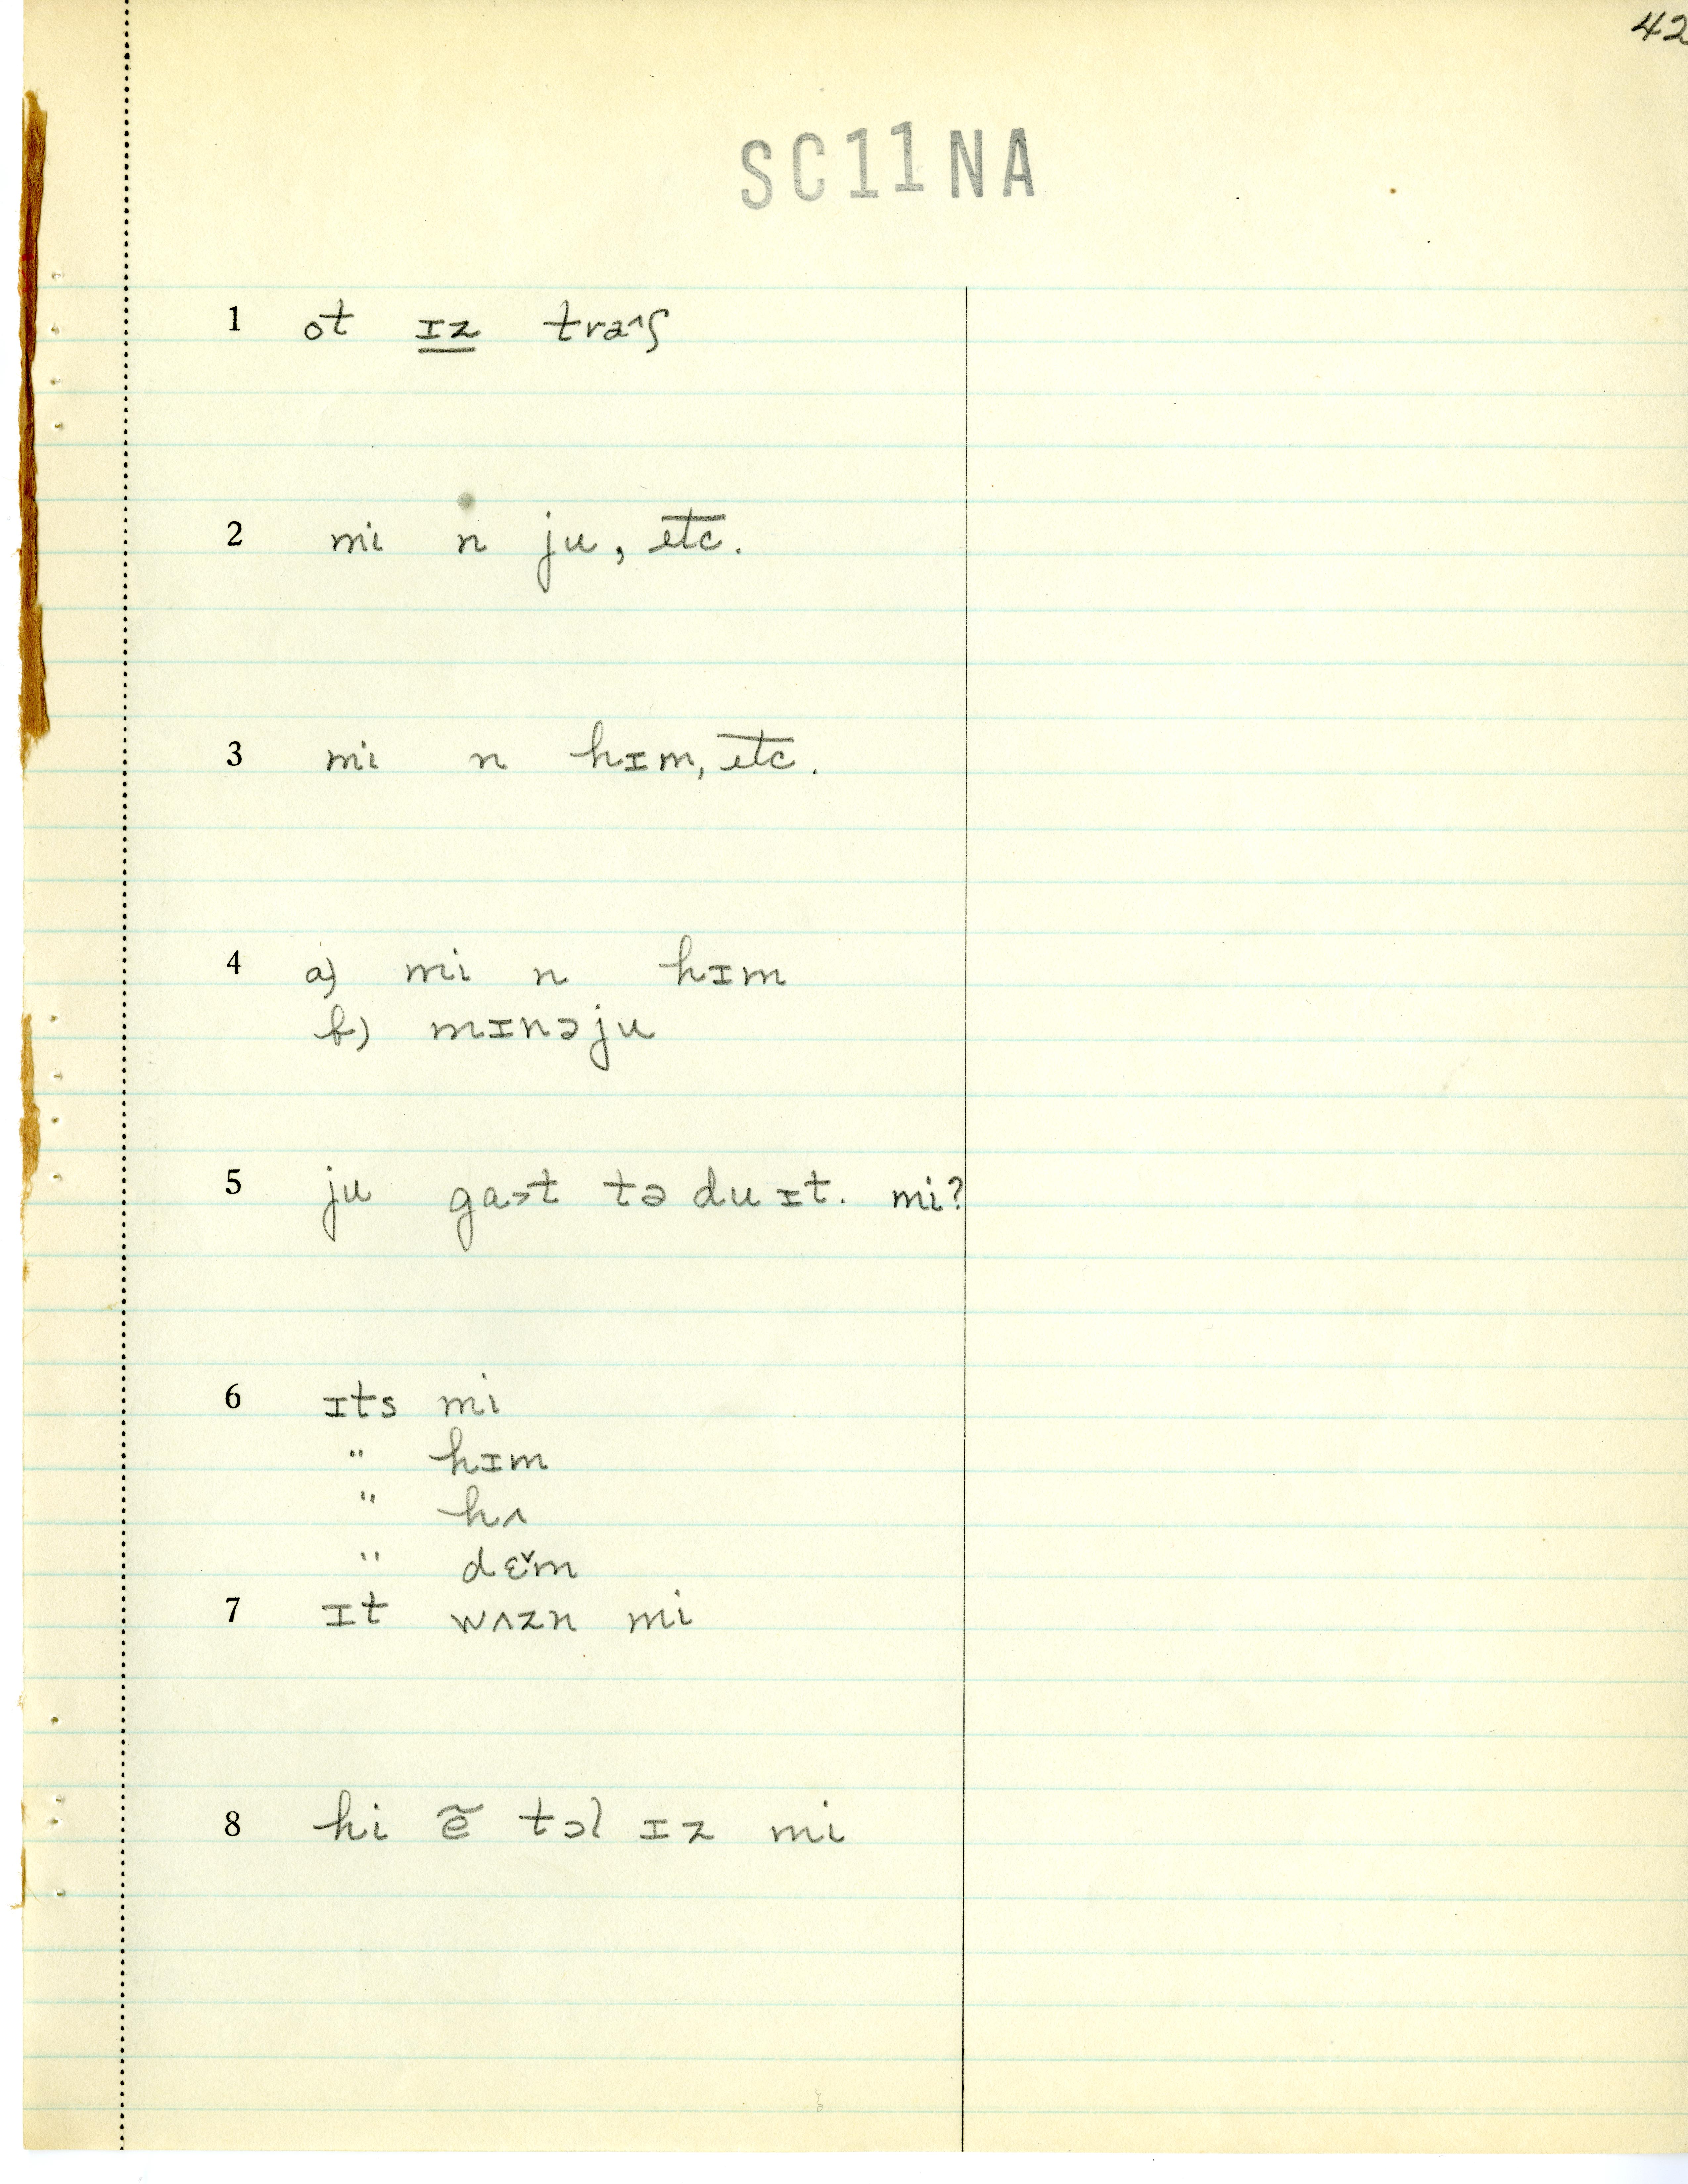 42
SC11NA
1 ot ɪz tra^ʃ
2 mi n ju, etc.
3 mi n hɪm, etc.
4 a) mi n hɪm
b) mɪnəju
5 ju ga>t tə du ɪt. mi?
6 ɪts mi
" hɪm
" hʌ
" dɛ˅m
7 ɪt wʌzn mi
8 hi ẽ tɔl ɪz mi